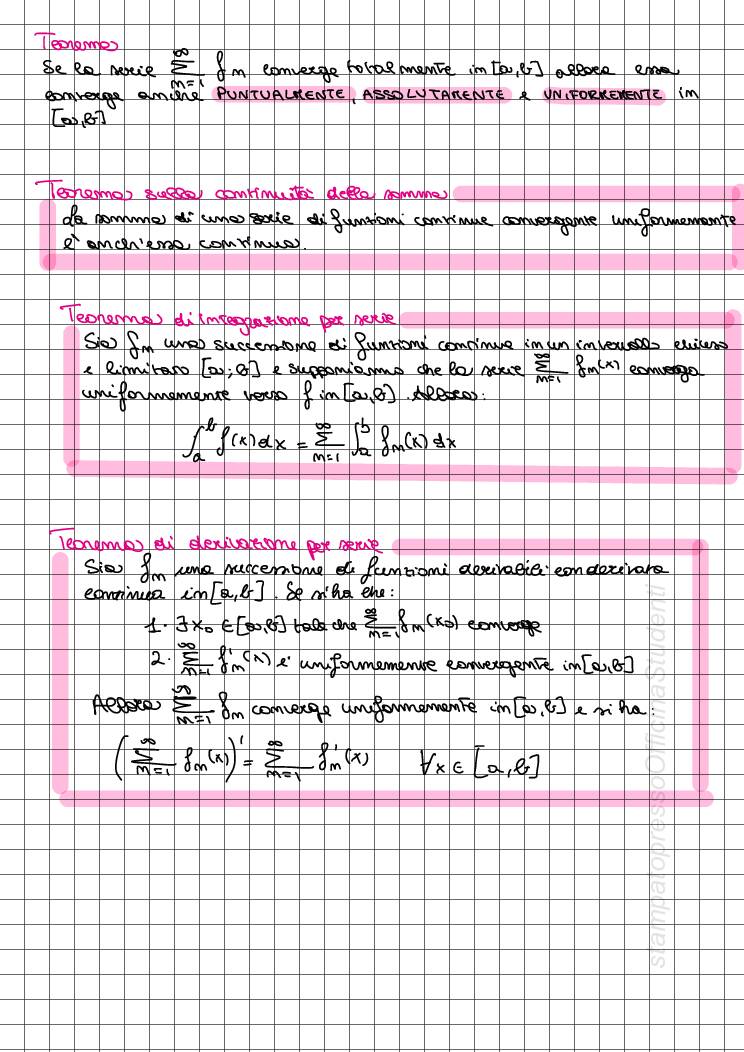 Teorema
Se la serie ∑_{n=1}^{∞} f_n converge totalmente in [a,b] allora essa
converge anche PUNTUALMENTE, ASSOLUTAMENTE e UNIFORMEMENTE in
[a,b]
Teorema sulla continuità della somma
La somma di una serie di funzioni continue convergente uniformemente
è anch'essa continua.
Teorema di integrazione per serie
Sia f_n una successione di funzioni continue in un intervallo chiuso
e limitato [a;b] e supponiamo che la serie ∑_{n=1}^{∞} f_n(x) converga
uniformemente verso f in [a,b]. Allora:
∫_a^b f(x)dx = ∑_{n=1}^{∞} ∫_a^b f_n(x) dx
Teorema di derivazione per serie
Sia f_n una successione di funzioni derivabili con derivata
continua in [a,b]. Se si ha che:
1. ∃ x_0 ∈ [a,b] tale che ∑_{n=1}^{∞} f_n(x_0) converge
2. ∑_{n=1}^{∞} f'_n(x) è uniformemente convergente in [a,b]
Allora ∑_{n=1}^{∞} f_n converge uniformemente in [a,b] e si ha:
(∑_{n=1}^{∞} f_n(x))' = ∑_{n=1}^{∞} f'_n(x) ∀x ∈ [a,b]
stampatopressoOfficinaStudenti